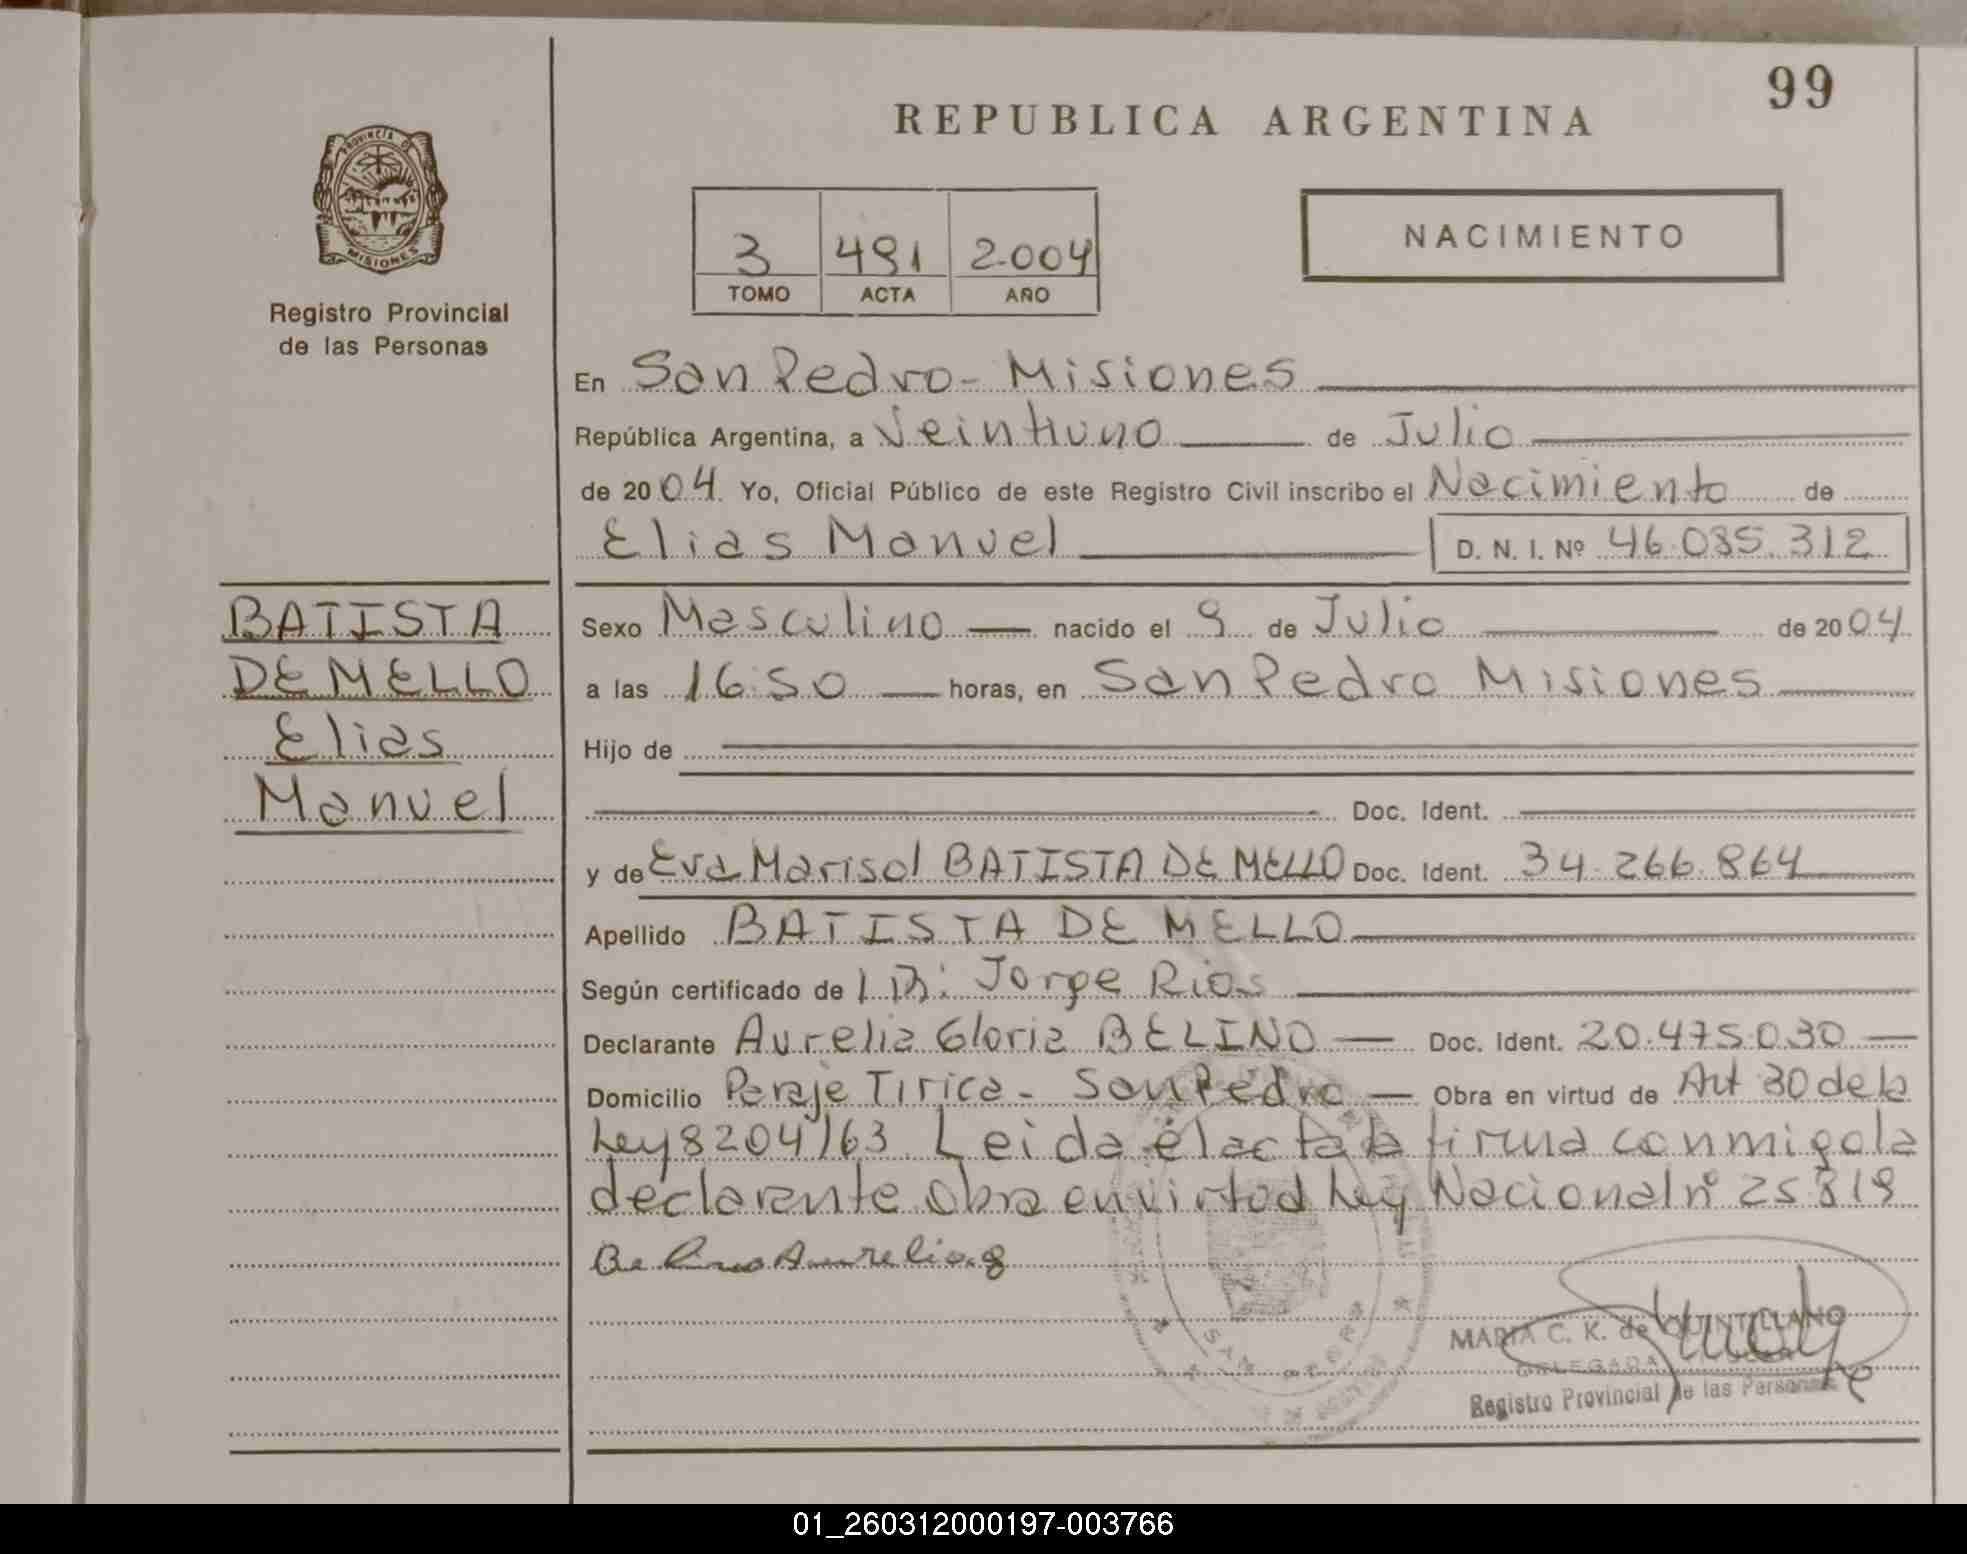 99
REPUBLICA ARGENTINA
PROVINCIA DE
MISIONES
Registro Provincial
de las Personas
3 491 2004
TOMO ACTA AÑO
NACIMIENTO
En San Pedro - Misiones
República Argentina, a Veintiuno de Julio
de 2004. Yo, Oficial Público de este Registro Civil inscribo el Nacimiento de
Elias Manuel D. N. I. Nº 46.035.312
BATISTA
DE MELLO
Elias
Manuel
Sexo Masculino nacido el 9 de Julio de 2004
a las 16:50 horas, en San Pedro Misiones
Hijo de
Doc. Ident.
y de Eva Marisol BATISTA DE MELLO Doc. Ident. 34.266.864
Apellido BATISTA DE MELLO
Según certificado de Jorge Rios
Declarante Aurelia Gloria BELINO Doc. Ident. 20.475.030
Domicilio Paraje Tirica - San Pedro Obra en virtud de Art 30 de la
Ley 8204/63 Leida el acta la firma conmigo la
declarante Obra en virtud Ley Nacional nº 25.819
Belino Aurelia g
SAN PEDRO
MARIA C. K. de QUINTILLANO
DELEGADA
Registro Provincial de las Personas
01_260312000197-003766